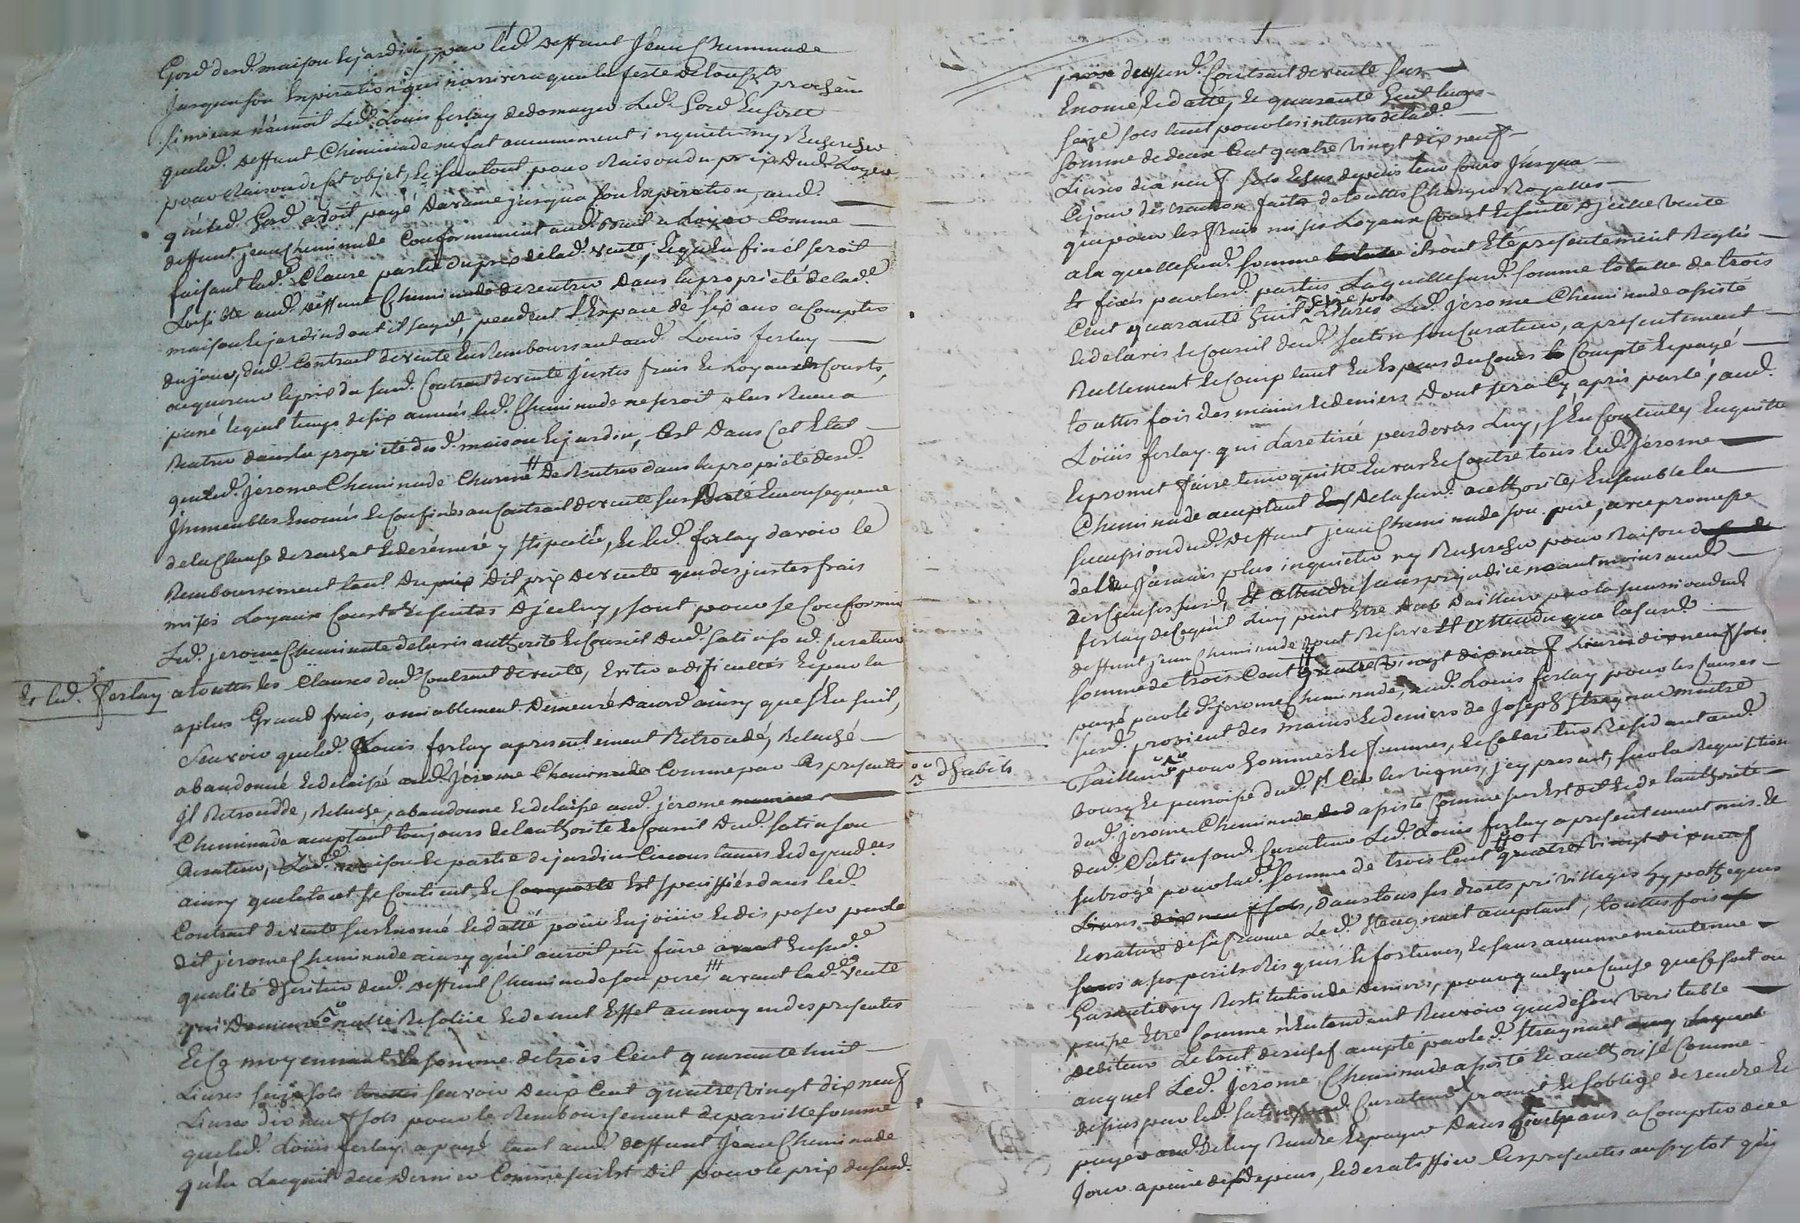 Gord desd. maison et jardin, par led. deffunt Jean Cheminade
jusqua son Expiration qui n'arrivera qua la feste de
prochain
si mieux n'aimoit Led. Louis ferlay dedomager Led. Gord En sorte
queled. deffunt Cheminade ne fut aucunement inquieté ny Recherché
pour Raison de Cet objet, pour Raison du prix dud. Loyer
queled. Gord avoit payé davance jusqua son Expiration, aud.
deffunt jean Cheminade Conformement aud. Bail a Loyer Comme
faisant lad. Clause partie du prix delad. vente, et qu'En fin il seroit
Loisible aud. deffunt Cheminade de rentrer Dans la proprieté delad.
maison et jardin dont il sagit, pendent l'Espace de six ans a Compter
du jour, dud. Contrat de vente En Remboursant aud. Louis ferlay
acquereur le prix du susd. Contrat de vente justes frais et Loyaux Couts,
passé lequel temps de six années led. Cheminade ne seroit plus Receu a
Rentrer dans la proprieté desd. maison et jardin, C'est Dans Cet Etat
queled. Jerome Cheminade Charmé De Rentrer dans la proprieté desd.
Immeubles Enoncés et Confinés au Contrat de vente sus daté En consequence
de la Clause de rachat et de réméré y stipulée, et led. ferlay davoir le
Remboursement tant du dit prix de vente que des justes frais
mises Loyaux Couts et suites d'jcelluy, sont pour se Conformer
Led. jerome Cheminade de lavis authorité et Conseil dud. satin son d. Curateur
Et led. ferlay
a touttes les Clauses dud. Contrat de vente, Eviter a dificultés et pour la
a plus Grand frais, amiablement Demeuré daccord ainsy que s'En suit,
Scavoir queled. Louis ferlay a presentement Retroscedé, Relaché
abandonné et delaissé aud. Jerome Cheminade Comme par Ces presentes
Il Retroscedde, Relache, abandonne et delaisse aud. jerome
Cheminade acceptant toujours de lauthorité et Conseil dud. satin son
Curateur, Lad. maison et partie de jardin Circonstances et dependces
ainsy que le tout se Contient et Comporte Est specifiés dans led.
Contrat de vente sus Enoncé et datté pour En jouir et disposer par le
dit jerome Cheminade ainsy qu'il auroit pu faire En sad.
qualité d'heritier dud. deffunt Cheminade son pere avant lad. vente
qui Demeure nulle Resolue et de nul Effet au moyen des presentes
Et Ce moyennant la somme de trois Cent quarante huit
Livres seize sols scavoir Deux Cent quatre vingt dix neuf
Livres dix neuf sols pour le Remboursement de pareille somme
queled. Louis ferlay a payé tant aud. deffunt Jean Cheminade
qu'a Lacquit de ce Dernier Comme sus Est dit pour le prix du susd.
prix du susd. Contrat de vente sus
Enoncé et datté, et quarante huit livres
seize sols tant pour les interets de lad.
somme de deux Cent quatre vingt dix neuf
Livres dix neuf sols Echus depuis leur Cours Jusqua
Ce jour deduction faite de touttes Charges Royalles
que pour les frais mises Loyaux Couts et suites d'jcelle vente
a la quelle susd. somme ils ont Eté presentement Reglés
et fixés par lesd. parties, Laquelle susd. somme totalle de trois
Cent quarante huit Livres seize sols Led. Jerome Cheminade assisté
de lavis et Conseil dud. satin son Curateur, a presentement
Réellement et Comptant En Especes du Cours Compté et payé
touttes fois des mains et deniers Dont sera Cy après parlé, aud.
Louis ferlay qui La retiré par devers Luy, s'En Contente, En quitte
et promet faire tenir quitte Envers et Contre tous led. Jerome
Cheminade acceptant De la susd. authorité, Ensemble la
succession dud. deffunt jean Cheminade son pere, avec promesse
de Jamais plus inquieter ny Rechercher pour Raison
des Causes susd. sans prejudice neantmoins aud.
ferlay de Ce qu'il Luy peut Etre dub D'ailleurs par la succession dud.
deffunt jean Cheminade sont Reserve Et attendu que la susd.
somme de trois Cent quatre vingt dix neuf Livres dix neuf sols
payé par led. jerome Cheminade, aud. Louis ferlay pour les Causes
susd. provient des mains et deniers de Joseph Steygnac maitre
Tailleur pour hommes et femmes, et Cabaretier Residant aud.
d'habits
bourg et parroisse dud. st. les vignes, jcy present, sur la Requisition
dud. jerome Cheminade assisté Comme sus Est dit et de lauthorité
dud. Satin son d. Curateur Led. Louis ferlay a presentement mis et
subrogé pour lad. somme de trois Cent quatre vingt dix neuf
Livres dix neuf sols, dans tous ses droits privilleges hypotheques
et nature de sa Creance Led. Steygnac acceptant, touttes fois
a ses perils Risques et fortunes, et sans aucune maintenue
Garantie ny Restitution de deniers, pour quelque Cause que Ce soit ou
puisse Etre Comme n'Entendant Recevoir que de son veritable
Debiteur Le tout de rechef accepté par led. Steygnac
auquel Led. Jerome Cheminade assisté et authorisé Comme
dessus par led. satin son d. Curateur promet et s'oblige de rendre et
payer Dans ans a Compter de ce
Jour a peine de depens, et de ratiffier Ces presentes aussy tot qu'il